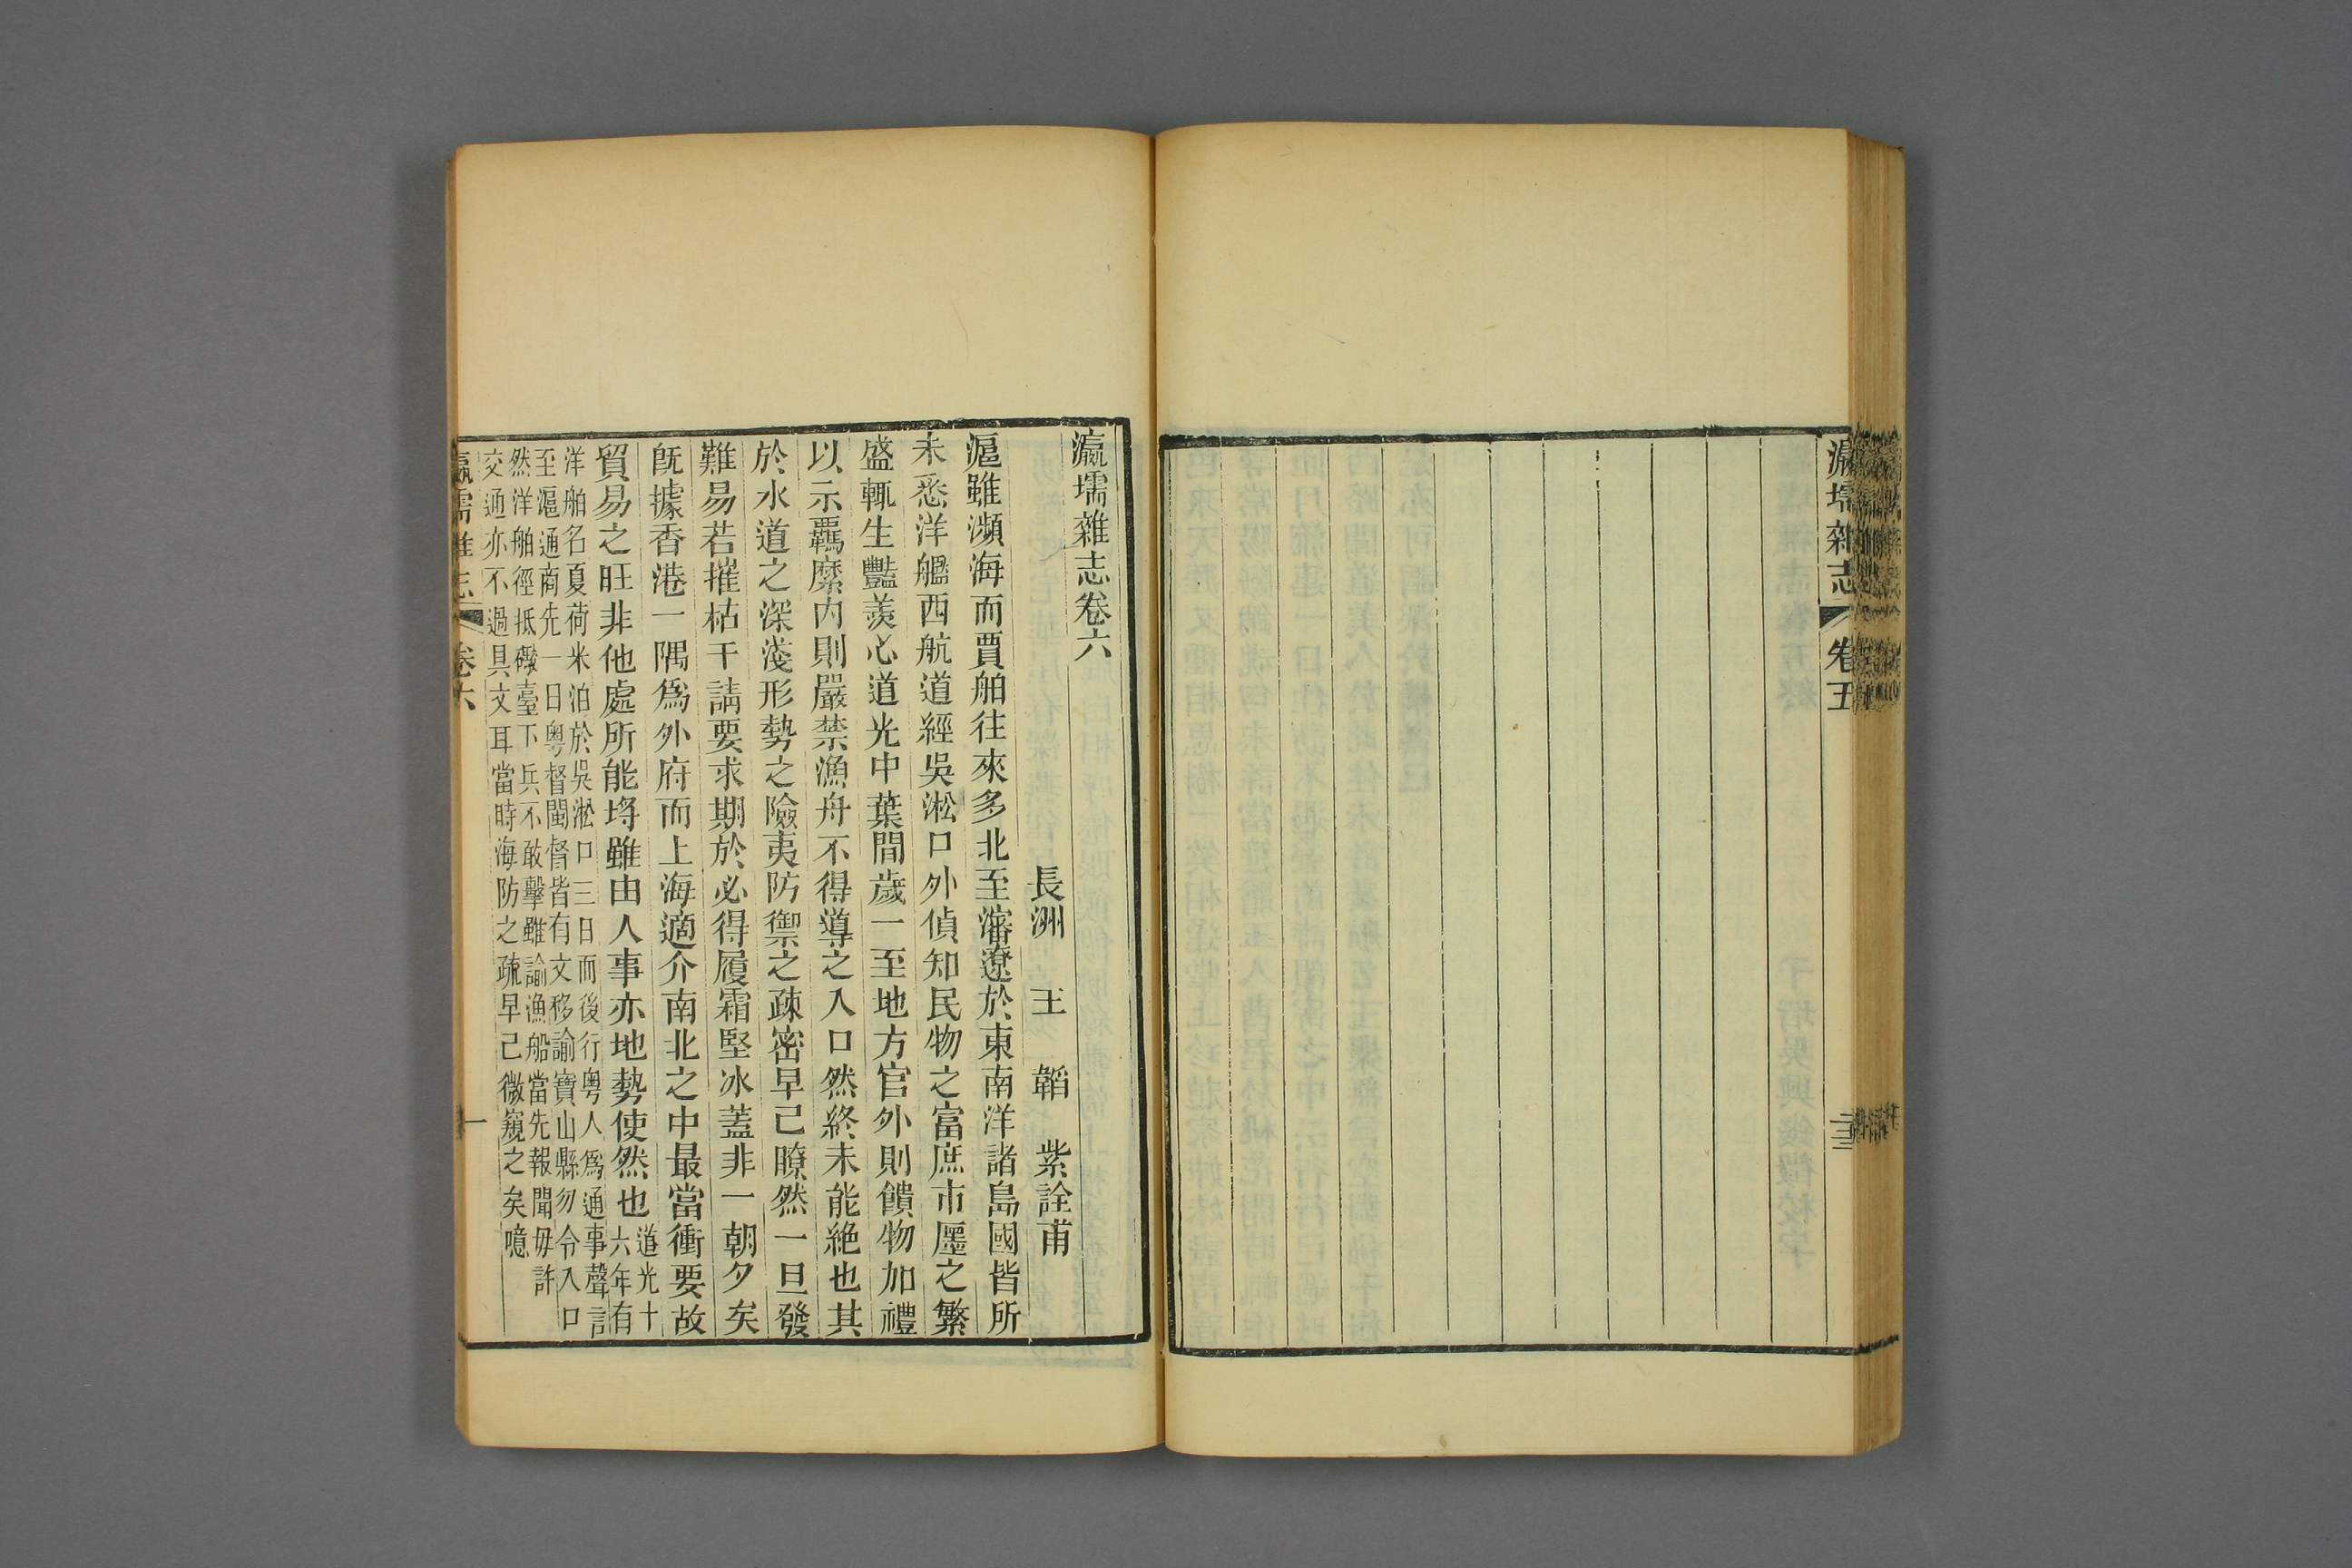 瀛壖雜志
卷五
二十三
瀛壖雜志卷六
長洲 王 韜 紫詮甫
滬雖瀕海而賈舶往來多北至瀋遼於東南洋諸島國皆所
未悉洋艦西航道經吳淞口外偵知民物之富庶市廛之繁
盛輒生豔羨心道光中葉間歲一至地方官外則饋物加禮
以示羈縻內則嚴禁漁舟不得導之入口然終未能絶也其
於水道之深淺形勢之險夷防禦之疎密早已瞭然一旦發
難易若摧枯干請要求期於必得履霜堅冰蓋非一朝夕矣
旣據香港一隅爲外府而上海適介南北之中最當衝要故
貿易之旺非他處所能埓雖由人事亦地勢使然也道光十
六年有
洋舶名夏荷米泊於吳淞口三日而後行粤人爲通事聲言
至滬通商先一日粤督閩督皆有文移諭寶山縣勿令入口
然洋舶徑抵礮臺下兵不敢擊雖諭漁船當先報聞毋許
交通亦不過具文耳當時海防之疏早已微窺之矣噫
瀛壖雜志
卷六
一